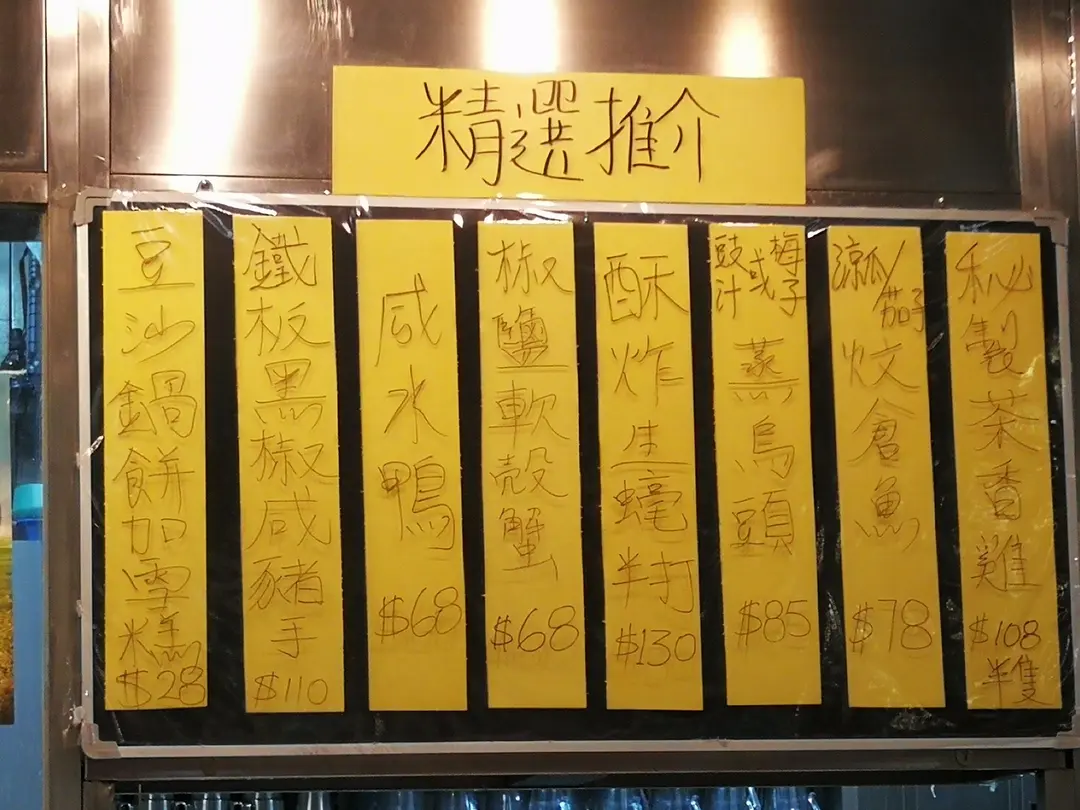 精選推介
豆沙鍋餅加雪糕
$28
鐵板黑椒咸豬手
$110
咸水鴨
$68
椒鹽軟殼蟹
$68
酥炸生蠔半打
$130
豉汁或梅子蒸烏頭
$85
涼瓜/茄子炆倉魚
$78
秘製茶香雞
$108
半隻